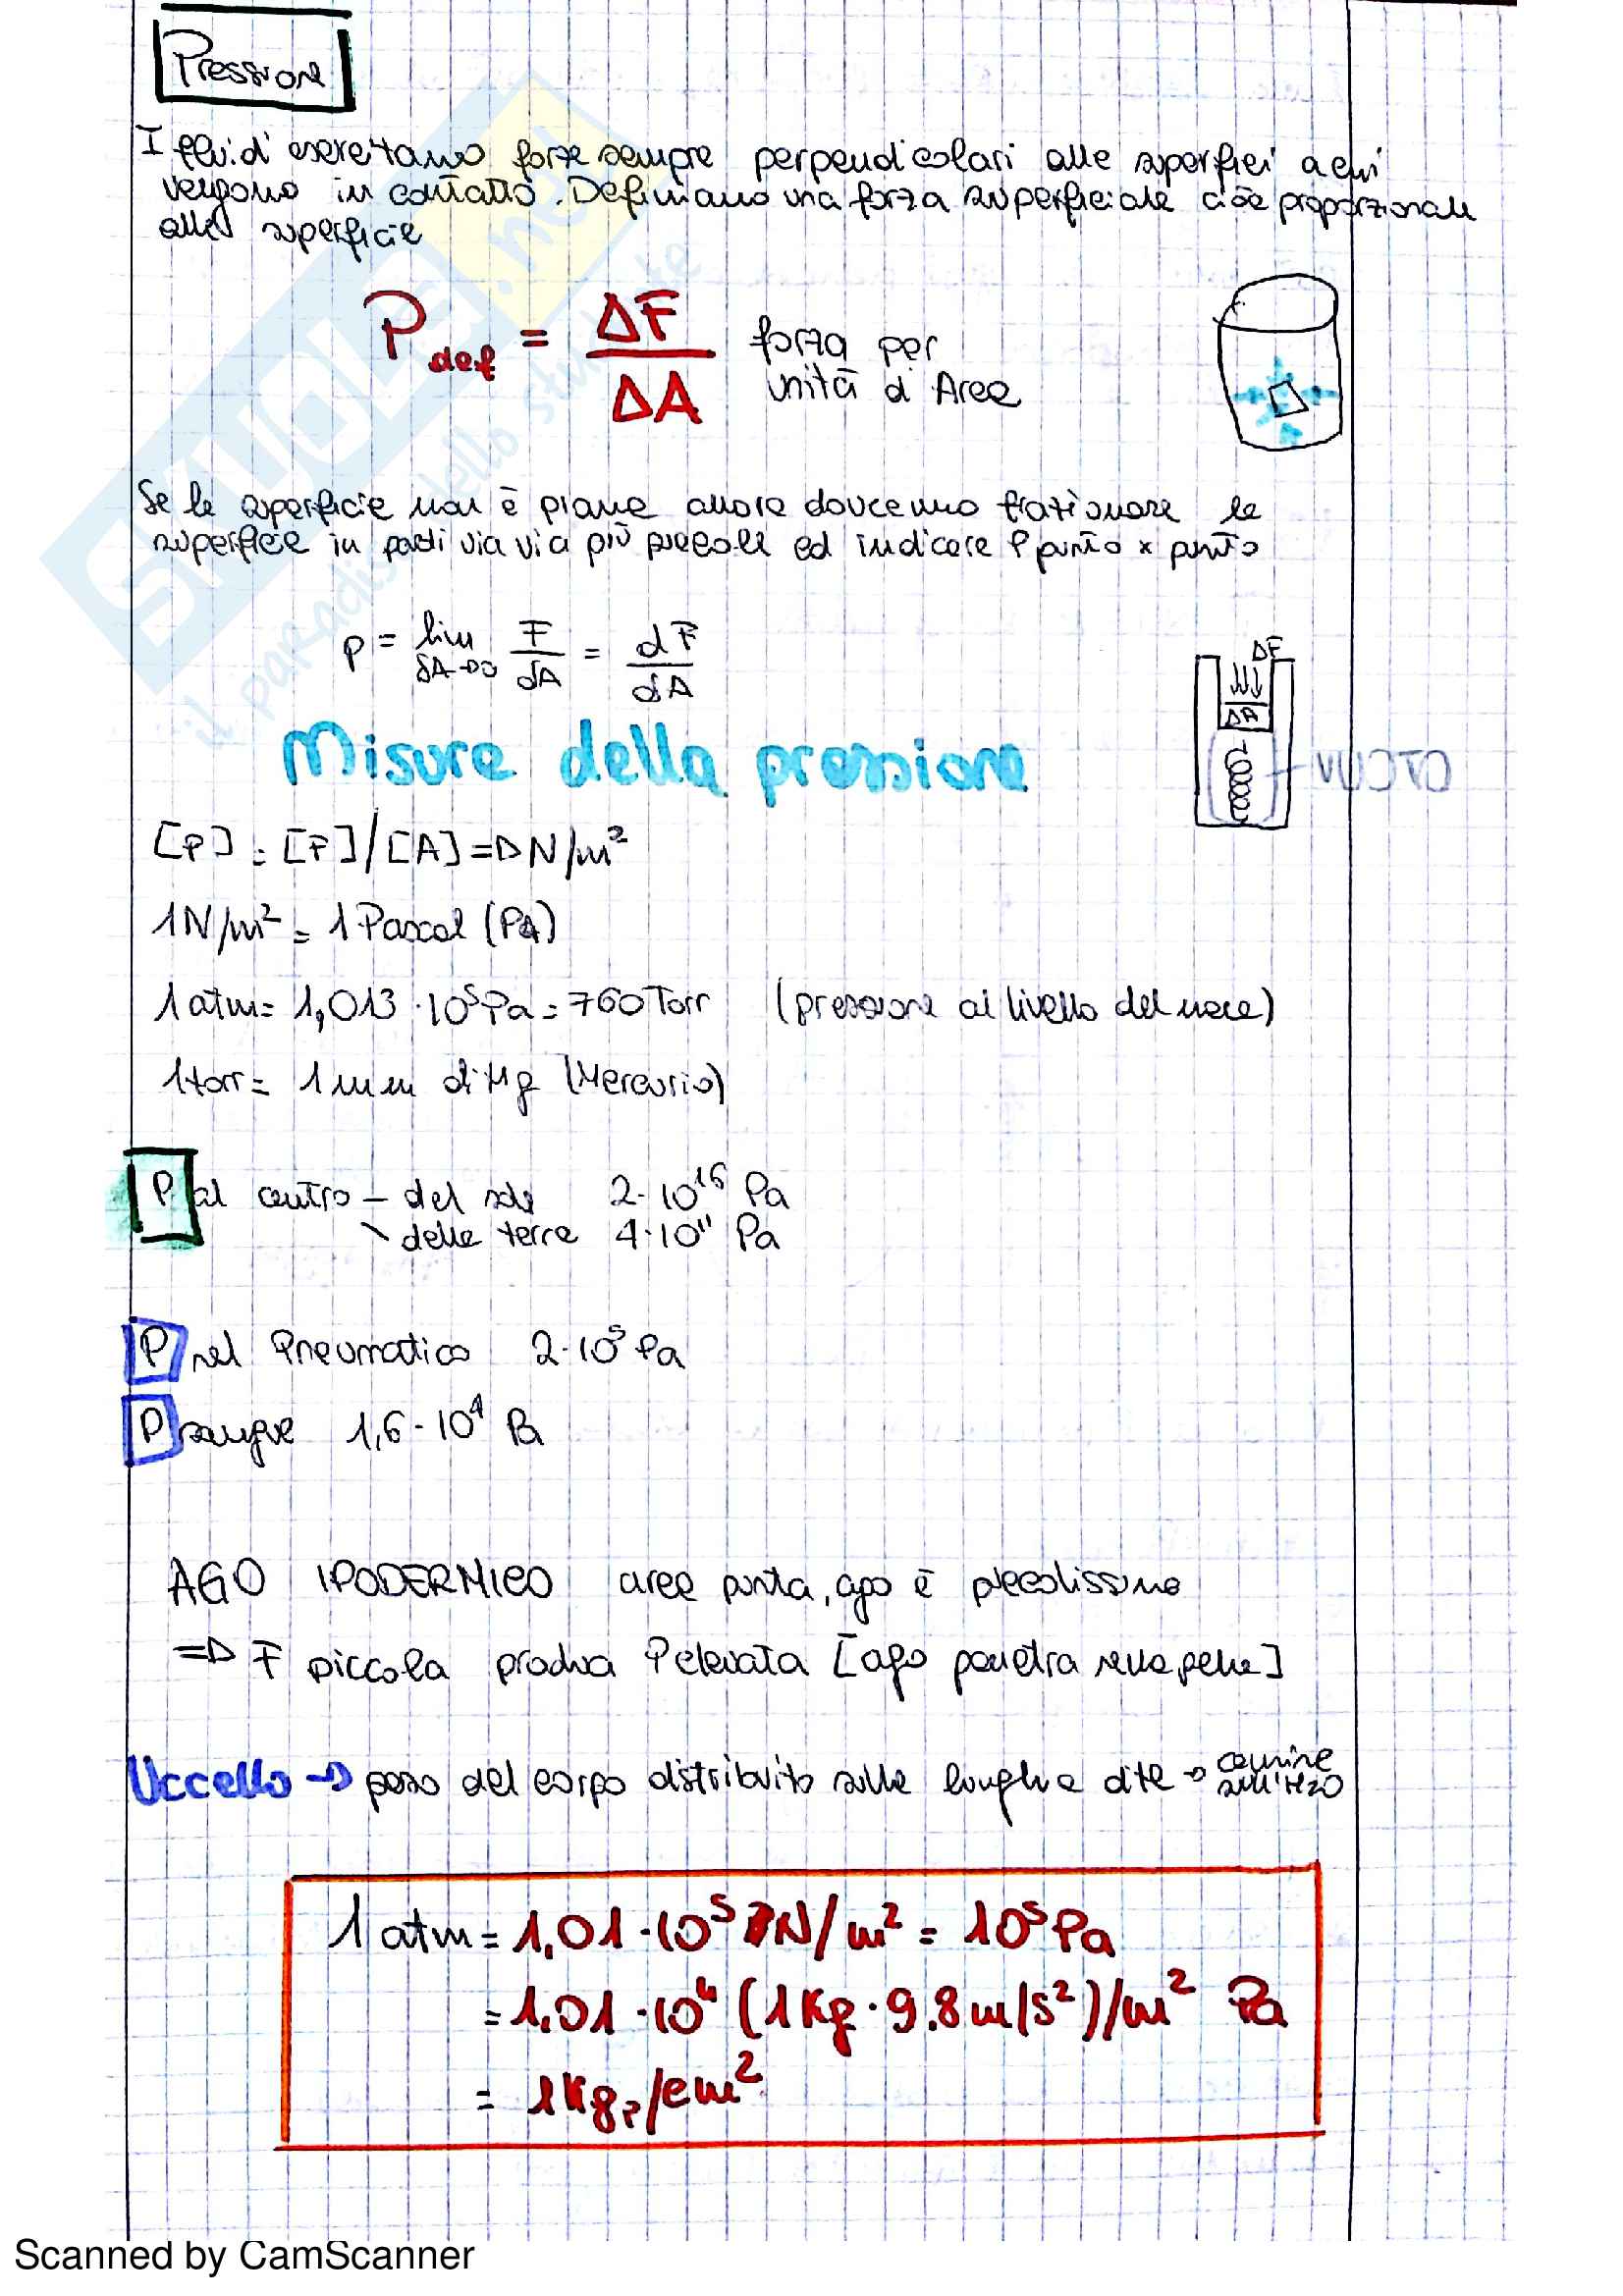 Pressione
I fluidi esercitano forze sempre perpendicolari alle superfici a cui
vengono in contatto. Definiamo una forza superficiale cioè proporzionale
alla superficie
P def = ΔF / ΔA forza per
unità di Area
Se la superficie non è piana allora dovremmo frazionare la
superficie in parti via via più piccole ed indicare P punto x punto
p = lim δA→0 F/dA = dF/dA
ΔF
ΔA
VUOTO
Misure della pressione
[P] = [F]/[A] => N/m²
1N/m² = 1 Pascal (PA)
1 atm = 1,013 · 10⁵ Pa = 760 Torr (pressione al livello del mare)
1 torr = 1 mm di Hg (Mercurio)
P al centro – del sole 2·10¹⁶ Pa
\ della terra 4·10¹¹ Pa
P nel Pneumatico 2·10⁵ Pa
P sangue 1,6·10⁴ Pa
AGO IPODERMICO area punta, ago è piccolissima
=> F piccola produce P elevata [ago penetra nella pelle]
Uccello → peso del corpo distribuito sulle lunghe dita →
1 atm = 1.01·10⁵ N/m² = 10⁵ Pa
= 1.01·10⁴ (1Kg·9.8m/s²)/m² Pa
= 1Kg /cm²
SKUOLA.net
il paradiso dello studente
Scanned by CamScanner